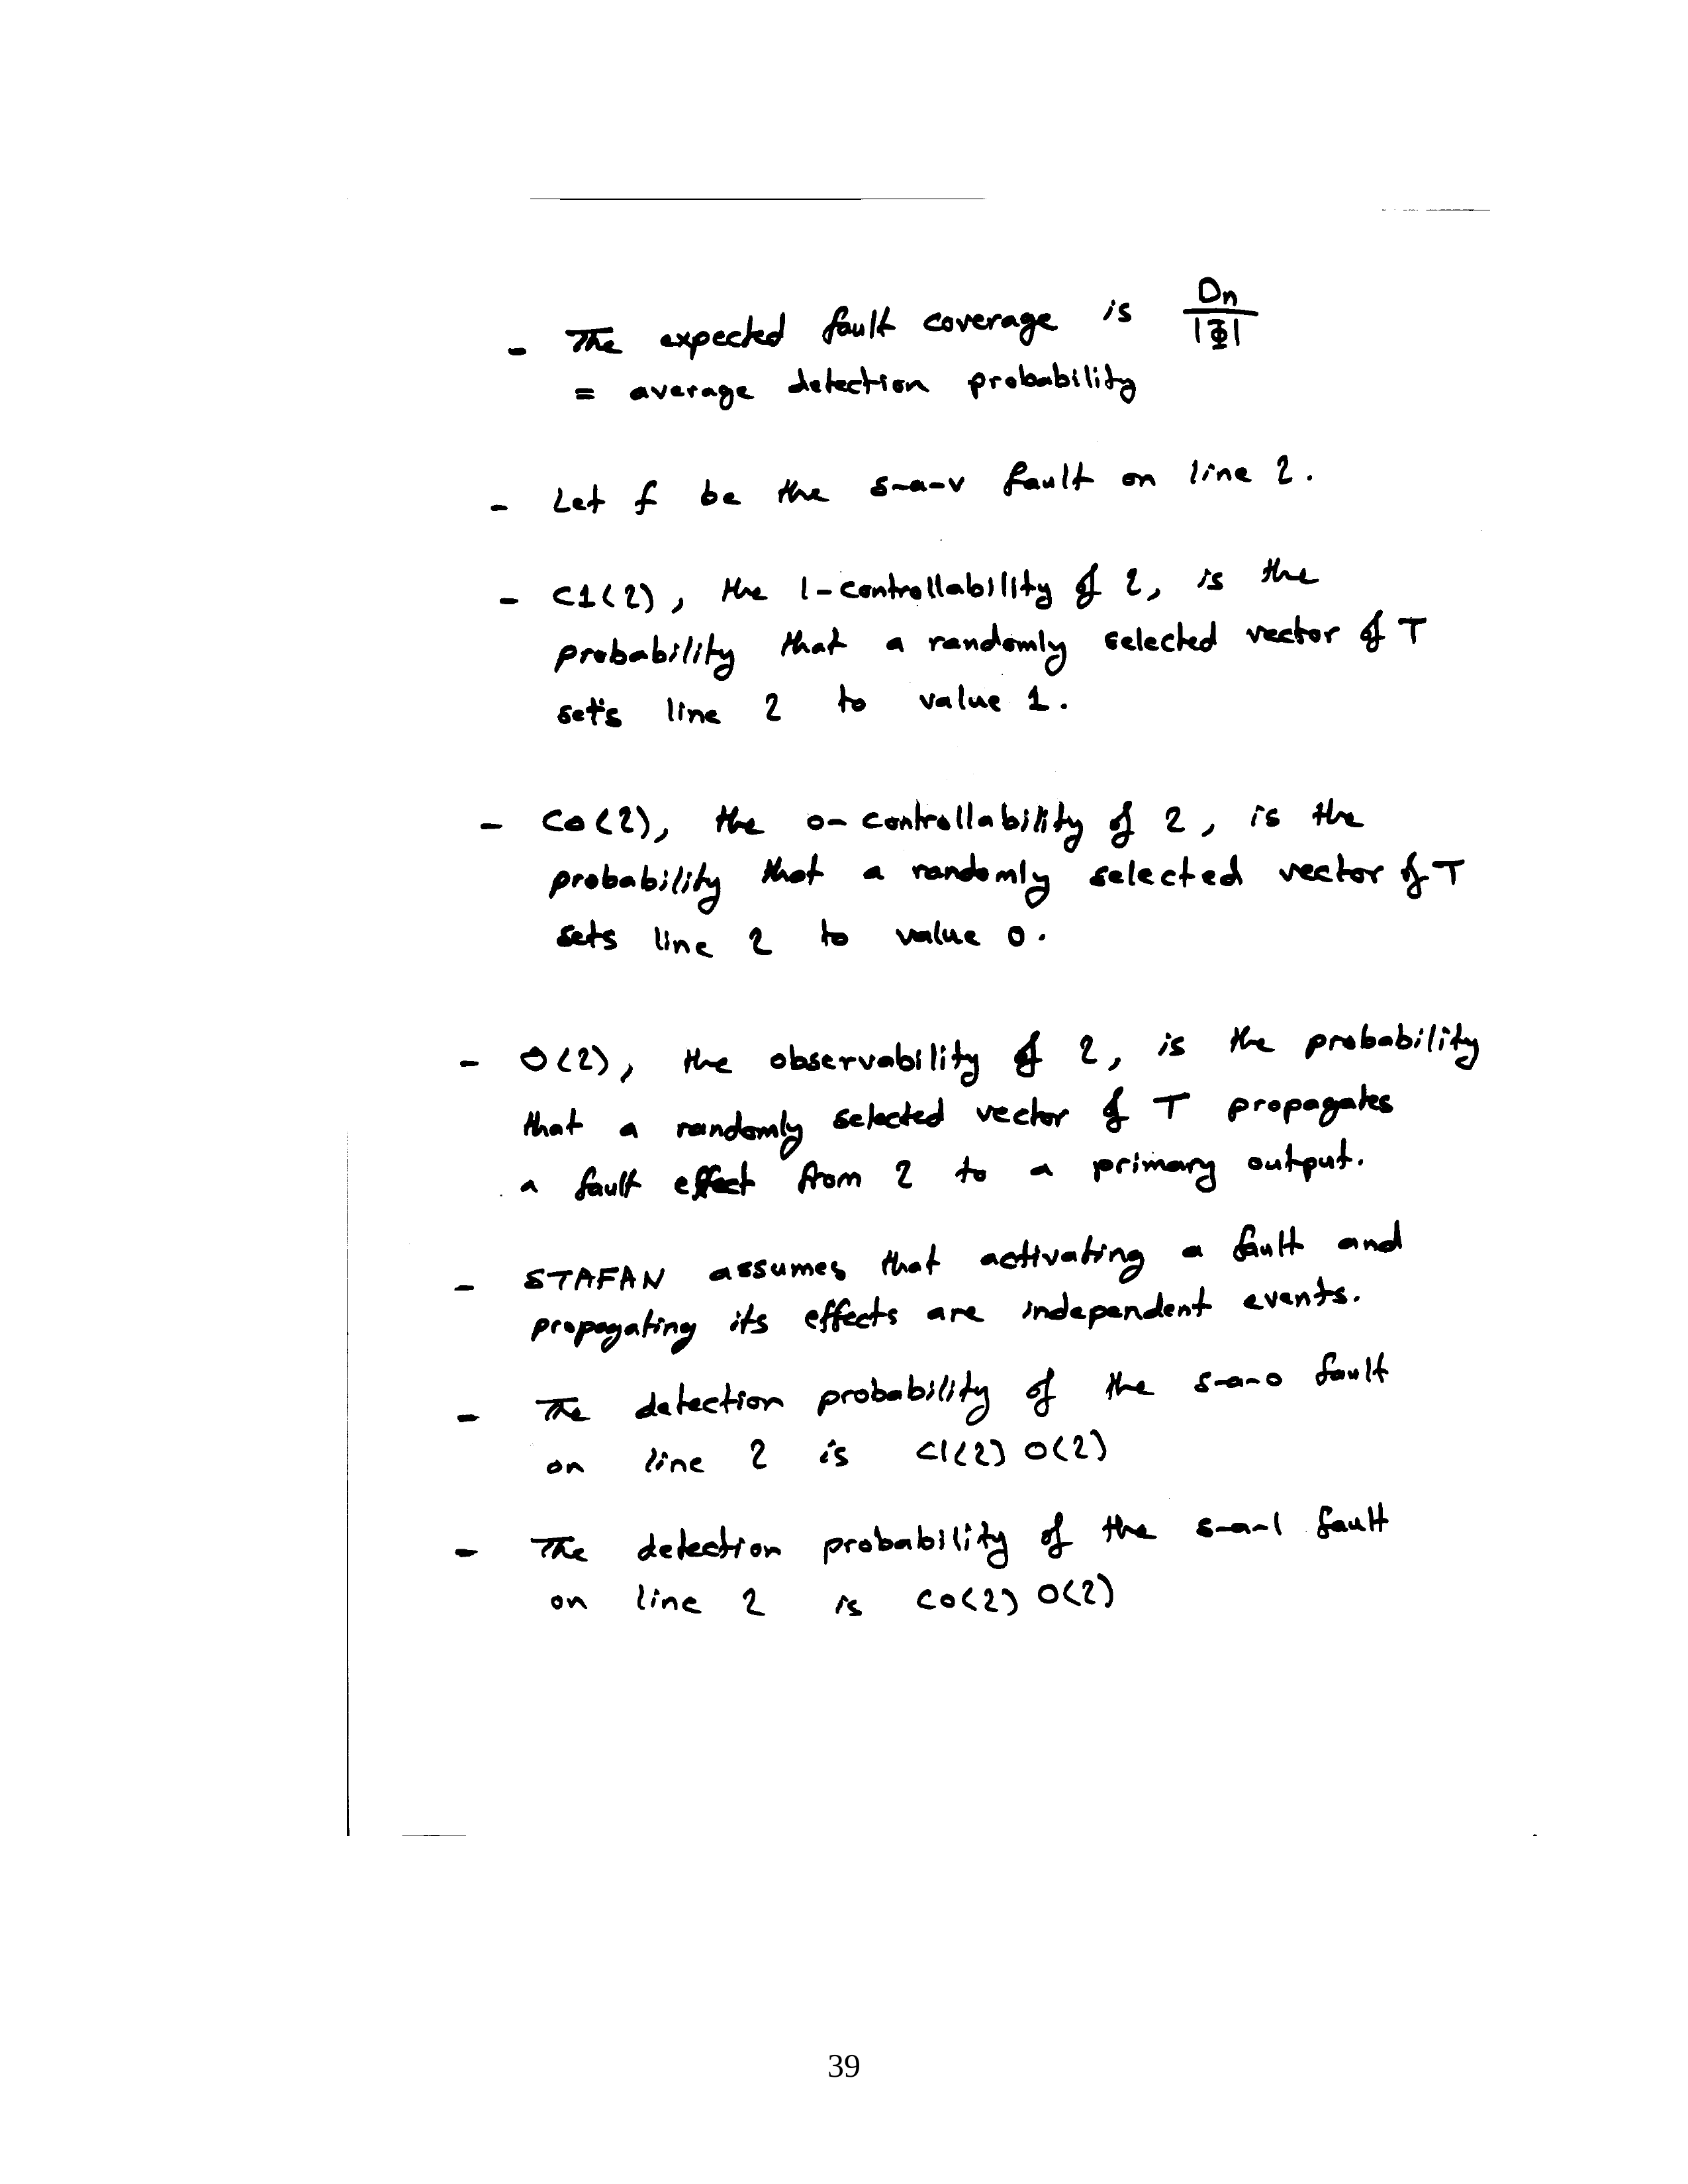 - The expected fault coverage is Dn / |Φ|
= average detection probability
- Let f be the s-a-v fault on line ℓ.
- C1(ℓ), the 1-controllability of ℓ, is the
probability that a randomly selected vector of T
sets line ℓ to value 1.
- C0(ℓ), the 0-controllability of ℓ, is the
probability that a randomly selected vector of T
sets line ℓ to value 0.
- O(ℓ), the observability of ℓ, is the probability
that a randomly selected vector of T propagates
a fault effect from ℓ to a primary output.
- STAFAN assumes that activating a fault and
propagating its effects are independent events.
- The detection probability of the s-a-0 fault
on line ℓ is C1(ℓ) O(ℓ)
- The detection probability of the s-a-1 fault
on line ℓ is C0(ℓ) O(ℓ)
39